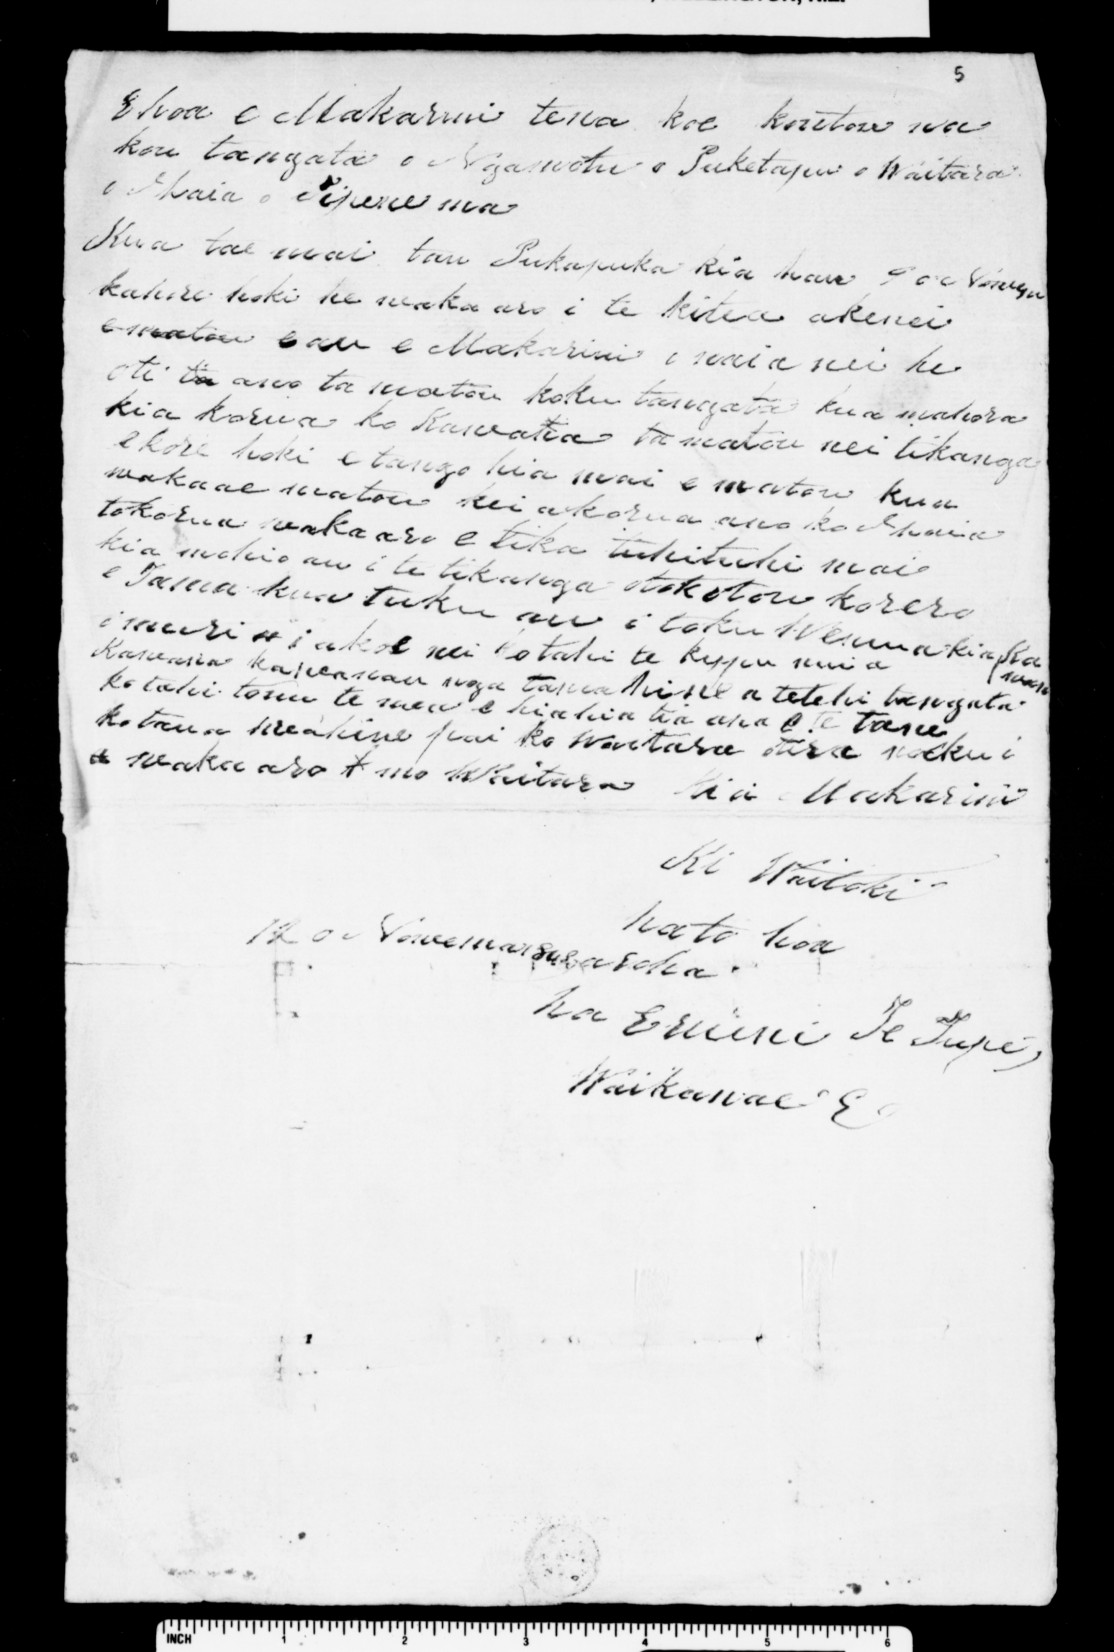 5
E hoa e Makarini tena koe koutou na
kou tangata o Ngamotu o Puketapu o Waitara
o Ihaia o Tipene ma
Kua tae mai tau Pukapuka kia hau 9 o Nowema
kahore hoki he wakaaro i te kitea akenei
e matou e au e Makarini i naia nei he
oti ta ano ta matou koku tangata kua mahora
kia korua ko Kawana ta matou nei tikanga
ekore hoki e tango hia mai e matou kua
wakaae matou kei a korua ano ko Ihaia
tokorua wakaaro e tika tuhituhi mai
kia mohio au i te tikanga otokotou korero
e Tama kua tuku au i toku Wenua kia
i muri i akoe nei kotahi te kupu nui a
Kawana nga tama hine a tetehi tangata
kotahi tonu te mea e hiahia tia ana e te tane
ko taua wahine pai ko Waitara otira naku i
wakaaro mo Waitara Kia Makarini
Ki Waitoki
hato hoa
12 o Nowema aroha
ha Erueni Te Tupe
Waikanae
INCH 1 2 3 4 5 6